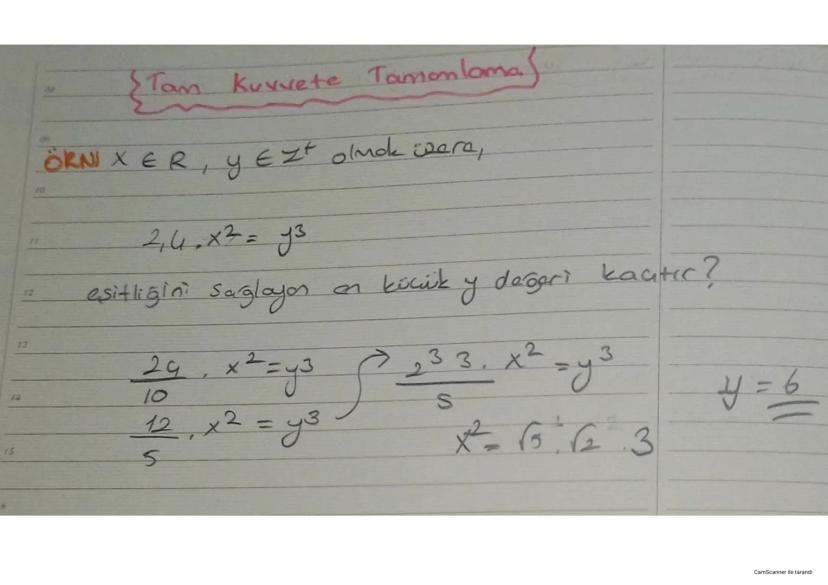 {Tam Kuvvete Tamamlama}
ÖRN| X ∈ R, y ∈ Z⁺ olmak üzere,
2,4.x² = y³
eşitliğini sağlayan en küçük y değeri kaçtır?
24/10 . x² = y³
12/5 . x² = y³
2³ 3/5 . x² = y³
x² = √5 . √2 . 3
y = 6
CamScanner ile tarandı